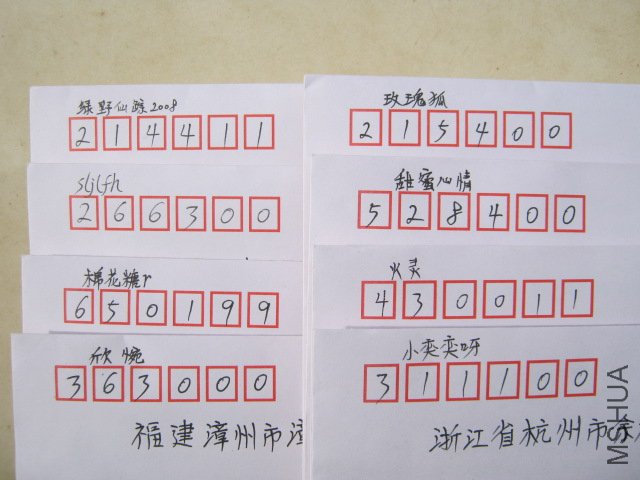 绿野仙踪2008
214411
sljlfh
266300
棉花糖r
650199
欣惋
363000
福建漳州市漳
玫瑰狐
215400
甜蜜心情
528400
火灵
430011
小奕奕呀
311100
浙江省杭州市余
MSHUA